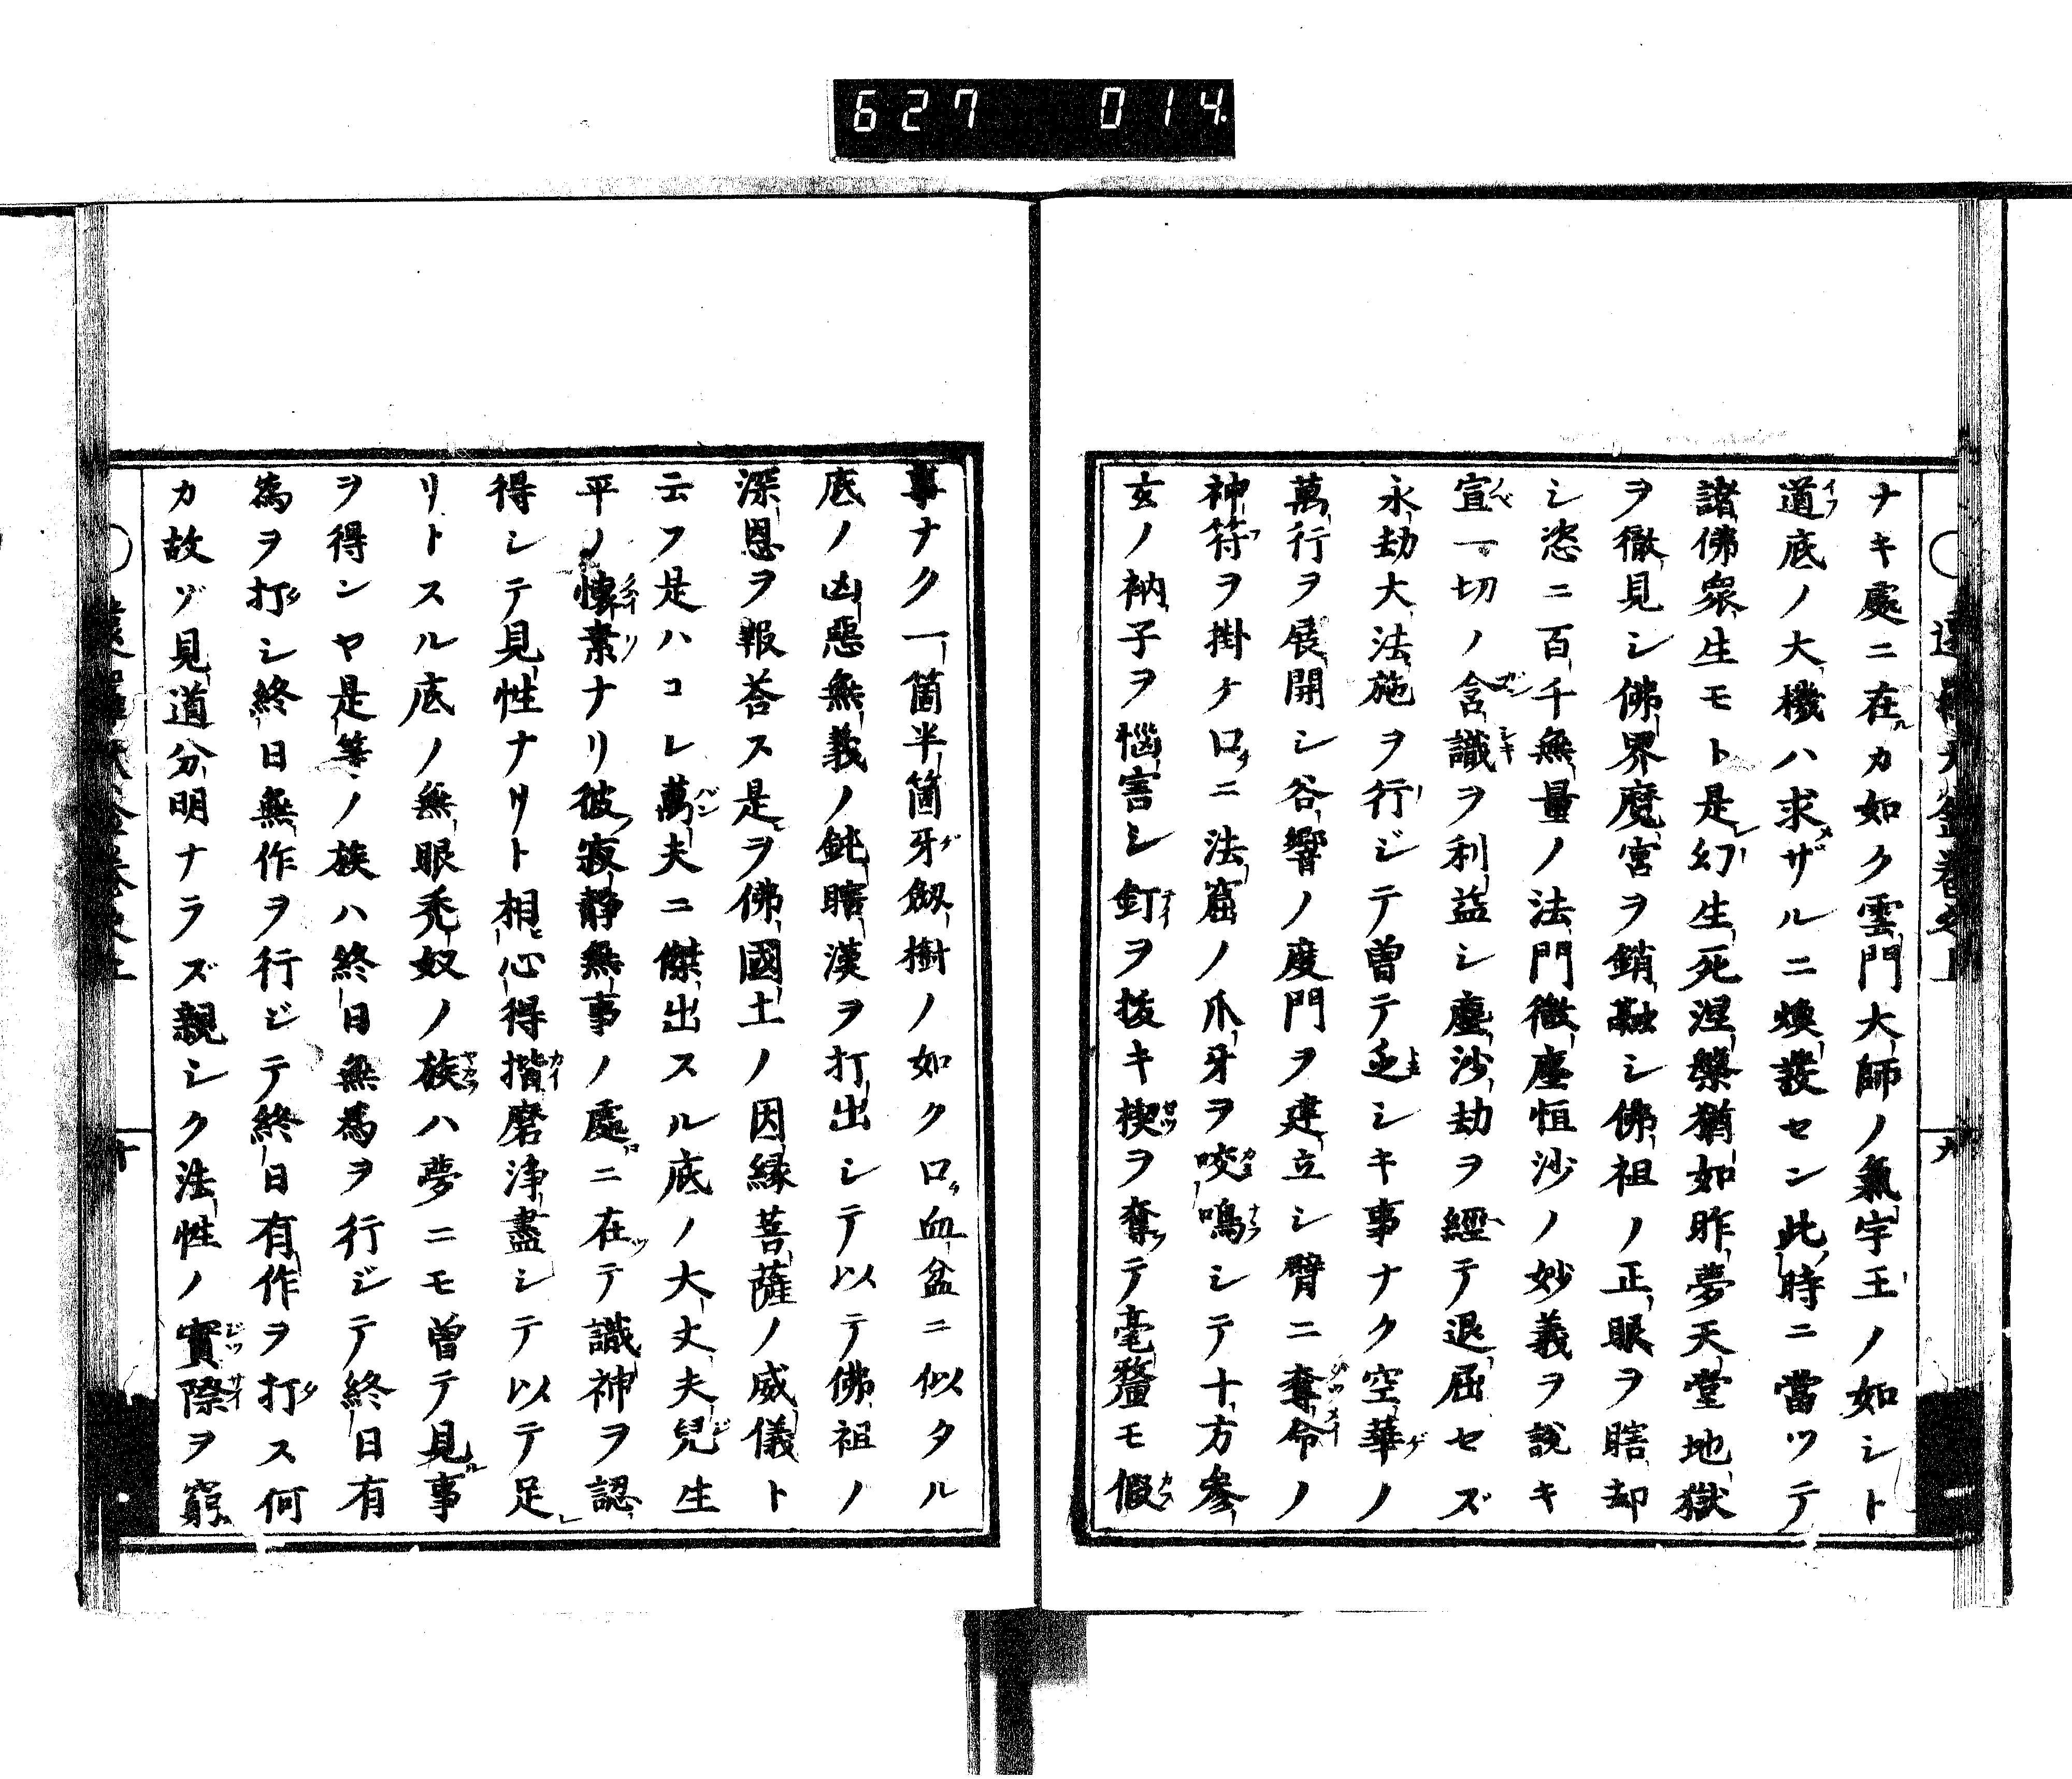 627 014
ナキ處ニ在カ如ク雲門大師ノ氣宇王ノ如シト
道底ノ大機ハ求ザルニ煥發セン此時ニ當ツテ
諸佛衆生モト是幻生死涅槃猶如昨夢天堂地獄
ヲ徹見シ佛界魔宮ヲ銷融シ佛祖ノ正眼ヲ瞎却
シ恣ニ百千無量ノ法門微塵恒沙ノ妙義ヲ說キ
宣一切ノ含識ヲ利益シ塵沙劫ヲ經テ退屈セズ
永劫大法施ヲ行ジテ曽テ乏シキ事ナク空華ノ
萬行ヲ展開シ谷響ノ度門ヲ建立シ臂ニ奪命ノ
神符ヲ掛ケ口ニ法窟ノ爪牙ヲ咬鳴シテ十方參
玄ノ衲子ヲ惱害シ釘ヲ拔キ楔ヲ奪テ毫釐モ假
九
事ナク一箇半箇牙劔樹ノ如ク口血盆ニ似タル
底ノ凶惡無義ノ鈍瞎漢ヲ打出シテ以テ佛祖ノ
深恩ヲ報荅ス是ヲ佛國土ノ因縁菩薩ノ威儀ト
云フ是ハコレ萬夫ニ傑出スル底ノ大丈夫兒生
平ノ懐素ナリ彼寂静無事ノ處ニ在テ識神ヲ認
得シテ見性ナリト相心得揩磨浄盡シテ以テ足
リトスル底ノ無眼禿奴ノ族ハ夢ニモ曽テ見事
ヲ得ンヤ是等ノ族ハ終日無爲ヲ行ジテ終日有
為ヲ打シ終日無作ヲ行ジテ終日有作ヲ打ス何
カ故ゾ見道分明ナラズ親シク法性ノ實際ヲ窮
十